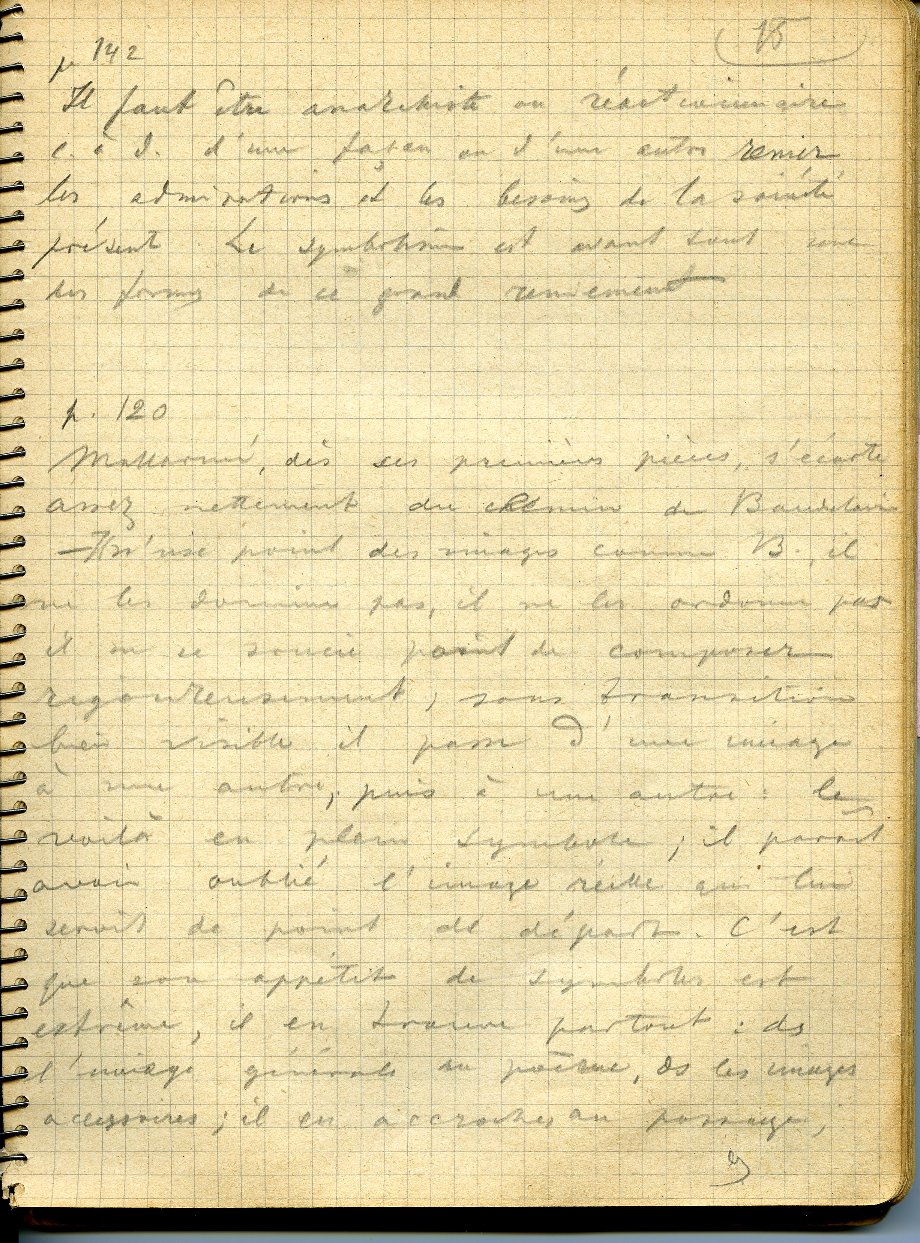 15
p. 142
Il faut être anarchiste ou réactionnaire
c. à d. d'une façon ou d'une autre renier
les admirations et les besoins de la société
présent. Le symbolisme est avant tout une
des formes de ce grand reniement
p. 120
Mallarmé, dès ses premières pièces, s'écarte
assez nettement du chemin de Baudelaire
– Il n'use point des images comme B., il
ne les domine pas, il ne les ordonne pas
il ne se soucie point de composer
rigoureusement ; sans transition
bien visible il passe d'une image
à une autre, puis à une autre : le
voilà en plein symbole ; il paraît
avoir oublié l'image réelle qui lui
servit de point de départ. C'est
que son appétit de symboles est
extrême, il en trouve partout : ds
l'image générale du poème, ds les images
accessoires ; il en accroche au passage,